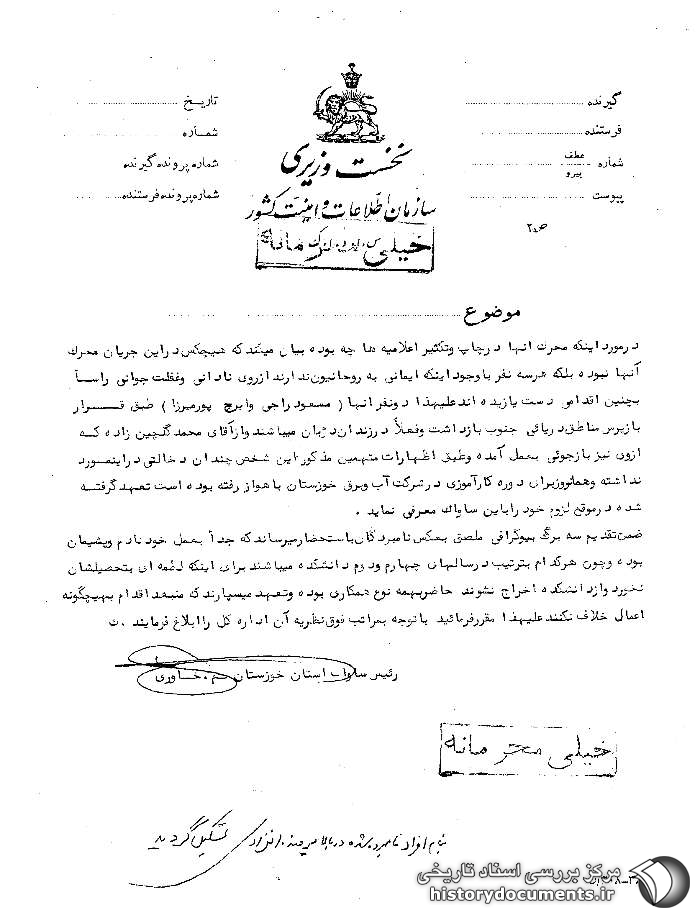 گیرنده
تاریخ
فرستنده
شماره
شماره عطف پیرو
شماره پرونده گیرنده
پیوست
شماره پرونده فرستنده
نخست وزیری
سازمان اطلاعات و امنیت کشور
خیلی محرمانه
موضوع
درمورد اینکه محرک آنها درچاپ وتکثیر اعلامیه ها چه بوده بیان میکنند که هیچکس دراین جریان محرك
آنها نبوده بلکه هرسه نفر باوجود اینکه ایمانی به روحانیون ندارند ازروی نادانی وغفلت جوانی راساً
بچنین اقدامی دست یازیده اند علیهذا دونفر آنها ( مسعود راجی وایرج پورمیرزا ) طبق قرار
بازپرس مناطق دریائی جنوب بازداشت وفعلاً درزندان دژبان میباشند وازآقای محمد گلچین زاده که
ازوی نیز بازجوئی بعمل آمده وطبق اظهارات متهمین مذکور این شخص چندان دخالتی دراینمورد
نداشته وهمانروز برای دوره کارآموزی درشرکت آب وبرق خوزستان باهواز رفته بوده است تعهد گرفتـه
شده درموقع لزوم خود راباین ساواك معرفی نماید .
ضمن تقدیم سه برگ بیوگرافی ملصق بعکس نامبردگان باستحضار میرساند که جداً بعمل خود نادم وپشیمان
بوده وچون هرکدام بترتیب درسالهای چهارم ودوم دانشکده میباشند برای اینکه لطمه ای بتحصیلشان
نخورد وازدانشکده اخراج نشوند حاضربهمه نوع همکاری بوده وتعهد میسپارند که منبعد اقدام بهیچگونه
اعمال خلاف نکنند علیهذا مقررفرمائید باتوجه بمراتب فوق نظریه آن اداره کل را ابلاغ فرمایند .
رئیس ساواك استان خوزستان خاوری
خیلی محرمانه
بنام افراد نامبرده شده در بالا پرونده انفرادی تشکیل گردید
مرکز بررسی اسناد تاریخی
historydocuments.ir